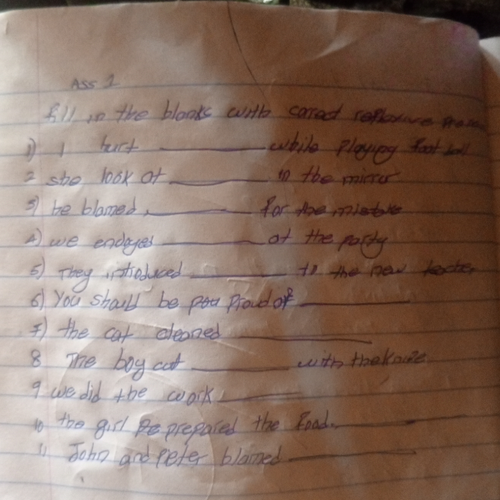 Ass 1
fill in the blanks with correct reflexive
1) I hurt ________ while playing foot ball
2 she look at ________ in the mirror
3) he blamed ________ for the mistake
4) we endoyed ________ at the party
5) They introduced ________ to the new teacher
6) You should be you proud of ________
7) the cat cleaned ________
8 The boy cut ________ with the knife
9 we did the work ________
10 the girl Pe prepared the food. ________
11 John and Peter blamed ________